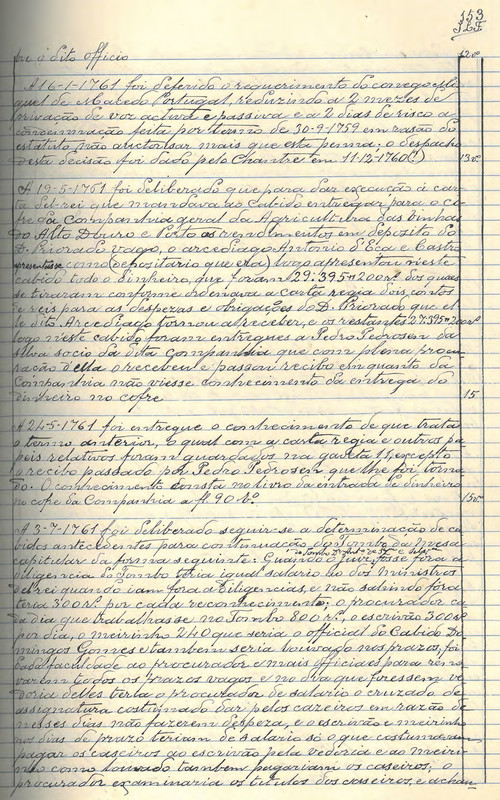 153
12vº
por o dito officio
A 16-1-1761 foi deferido o requerimento do conego Mi-
guel de Macedo Portugal, reduzindo a 2 mezes de
privação de voz activa e passiva e a 2 dias de risco a
condemnação feita por termo de 30-9-1759 em rasão do
estatuto não auctorisar mais que esta penna; o despacho
desta decisão foi dado pelo Chantre em 11-12-1760(!)
13vº
A 19-5-1761 foi deliberado que para dar execução á car-
ta del-rei que mandava ao Cabido entregar para o co-
fre da Companhia geral da Agricultura das Vinhas
do Alto Douro e Porto os rendimentos em deposito do
D. Priorado vago, o arcediago Antonio d'Eça e Castro
apresentasse como (depositario que era) logo apresentou neste
cabido todo o dinheiro, que foram 29:395#200rs. dos quaes
se tiraram conforme ordenava a carta regia dois contos
de reis para as despezas e obrigações do D. Priorado que el-
le dito Arcediago tornou a receber, e os restantes 27:395#200rs
logo neste cabido foram entregues a Pedro Pedrosem da
Silva socio da dita Companhia que com plena procu-
ração della o recebeu e passou recibo emquanto da
Companhia não viesse conhecimento da entrega do
dinheiro no cofre
15
A 24-5-1761 foi entregue o conhecimento de que trata
o termo anterior, o qual com a carta regia e outros pa-
peis relativos foram guardados na gaveta 11, excepto
o recibo passado por Pedro Pedrosem que lhe foi torna-
do. O conhecimento consta no livro da entrada de dinheiro
no cofre da Companhia a fl. 90 vº.
15vº
A 3-7-1761 foi deliberado seguir-se a determinação de ca-
bidos antecedentes para continuação do Tombo da Mesa
capitular da forma seguinte: Quando o Juiz fosse fóra a
diligencia do Tombo teria igual salario ao dos ministros
del-rei quando iam fóra a diligencias, e não sahindo fóra
teria 300rs. por cada reconhecimento; o procurador ca-
da dia que trabalhasse no Tombo 800rs., o escrivão 300rs
por dia, o meirinho 240 que seria o official do Cabido Do-
mingos Gomes e tambem seria louvado nos prazos, foi
dada faculdade ao procurador e mais officiaes para reno-
varem todos os prazos vagos e no dia que fizessem ve-
doria delles teria o procurador de salario o cruzado de
assignatura costumado dar pelos cazeiros em razão de
nesses dias não fazerem despeza, e o escrivão e meirinho
nos dias de prazo teriam de salario só o que costumavam
pagar os caseiros ao escrivão pela vedoria e ao meiri-
nho como louvado tambem pagariam os caseiros; o
procurador examinaria os titulos dos caseiros, e achan-